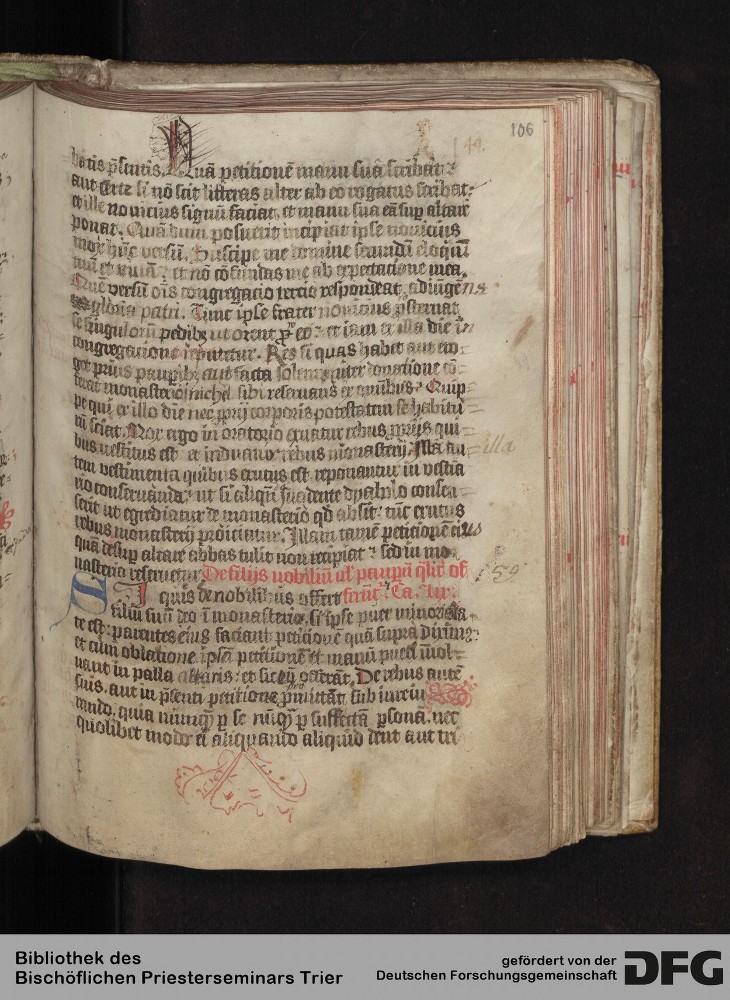 106
batis p̄sentis. Quā petitionē manu sua scribat:
aut certe si nō scit litteras alter ab eo rogatus scribat:
et ille nouicius signū faciat, et manu sua eā sup altare
ponat. Quā dum posuerit incipiat ipse nouicius
mox hūc versū. Suscipe me domine secundū eloquiū
tuū et viuā: et nō cōfundas me ab expectacione mea.
Quē versū oīs congregacio tercio respondeat, adiūgens
gloria patri. Tunc ipse frater nouicius p̄sternat
se singulorū pedibꝫ ut orent ꝓ eo: et iam ex illa die in
congregacione reputetur. Res si quas habet aut ero-
get prius pauperibꝫ aut facta solenniter donatione cō-
ferat monasterio nichil sibi reseruans ex omībus. Quip-
pe qui ex illo die nec ꝓprij corporis potestatem se habitu-
rū sciat. Mox ergo in oratorio exuatur rebus ꝓprijs qui-
bus vestitus est et induatur rebus monasterij. Illa au- illa
tem vestimenta quibus exutus est reponantur in vestia
rio conseruanda: ut si aliqn̄ suadente dyabolo consen-
serit ut egrediatur de monasterio qd absit: tūc exutus
rebus monasterij proiciatur. Illam tamē petitionē eius
quā desup altare abbas tulit non recipiat: sed in mo-
nasterio reseruetur. De filijs nobiliū ul' pauperū qui of
Si quis de nobilibus offert ferunt. Ca. lix. 59
filiū suū deo ī monasterio, si ipse puer minori eta-
te est: parentes eius faciant peticionē quā supra diximꝰ:
et cum oblatione ipsā petitionē et manū pueri inuol-
uant in palla altaris: et sic eū offerāt. De rebus autē
suis, aut in p̄senti petitione ꝓmittāt sub iureiu-
rando, quia nunqꝫ p se nūqꝫ p suffectā psonā, nec
quolibet modo ei aliquando aliquid dent aut tri
Bibliothek des
Bischöflichen Priesterseminars Trier
gefördert von der
Deutschen Forschungsgemeinschaft
DFG